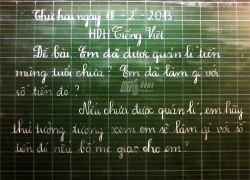 Thứ hai ngày 18 - 2 - 2013
HDH Tiếng Việt
Đề bài. Em đã được quản lí tiền
mừng tuổi chưa? Em đã làm gì với
số tiền đó?
Nếu chưa được quản lí, em hãy
thử tưởng tượng xem em sẽ làm gì với số
tiền đó nếu bố mẹ giao cho em?